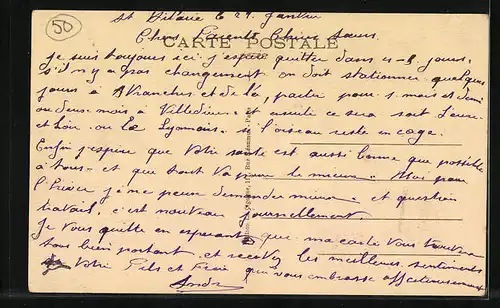 50
St Hilaire le 29 Janvier
Chers Parents Chère Sœur
CARTE POSTALE
Je suis toujours ici j'espère quitter dans 4-5 jours
s'il n'y a pas changement on doit stationner quelques
jours à Avranches et de là, partir pour 1 mois et demi
ou deux mois à Villedieu et ensuite ce sera soit l'Eure-
et-Loir ou le Lyonnais si l'oiseau reste en cage.
Enfin j'espère que votre santé est aussi bonne que possible
à tous et que tout va pour le mieux Moi pour
l'hiver je ne peux demander mieux et question
travail, c'est nouveau journellement
Je vous quitte en espérant que ma carte vous trouvera
tous bien portant et recevez les meilleurs sentiments
Votre Fils et Frère qui vous embrasse affectueusement
André